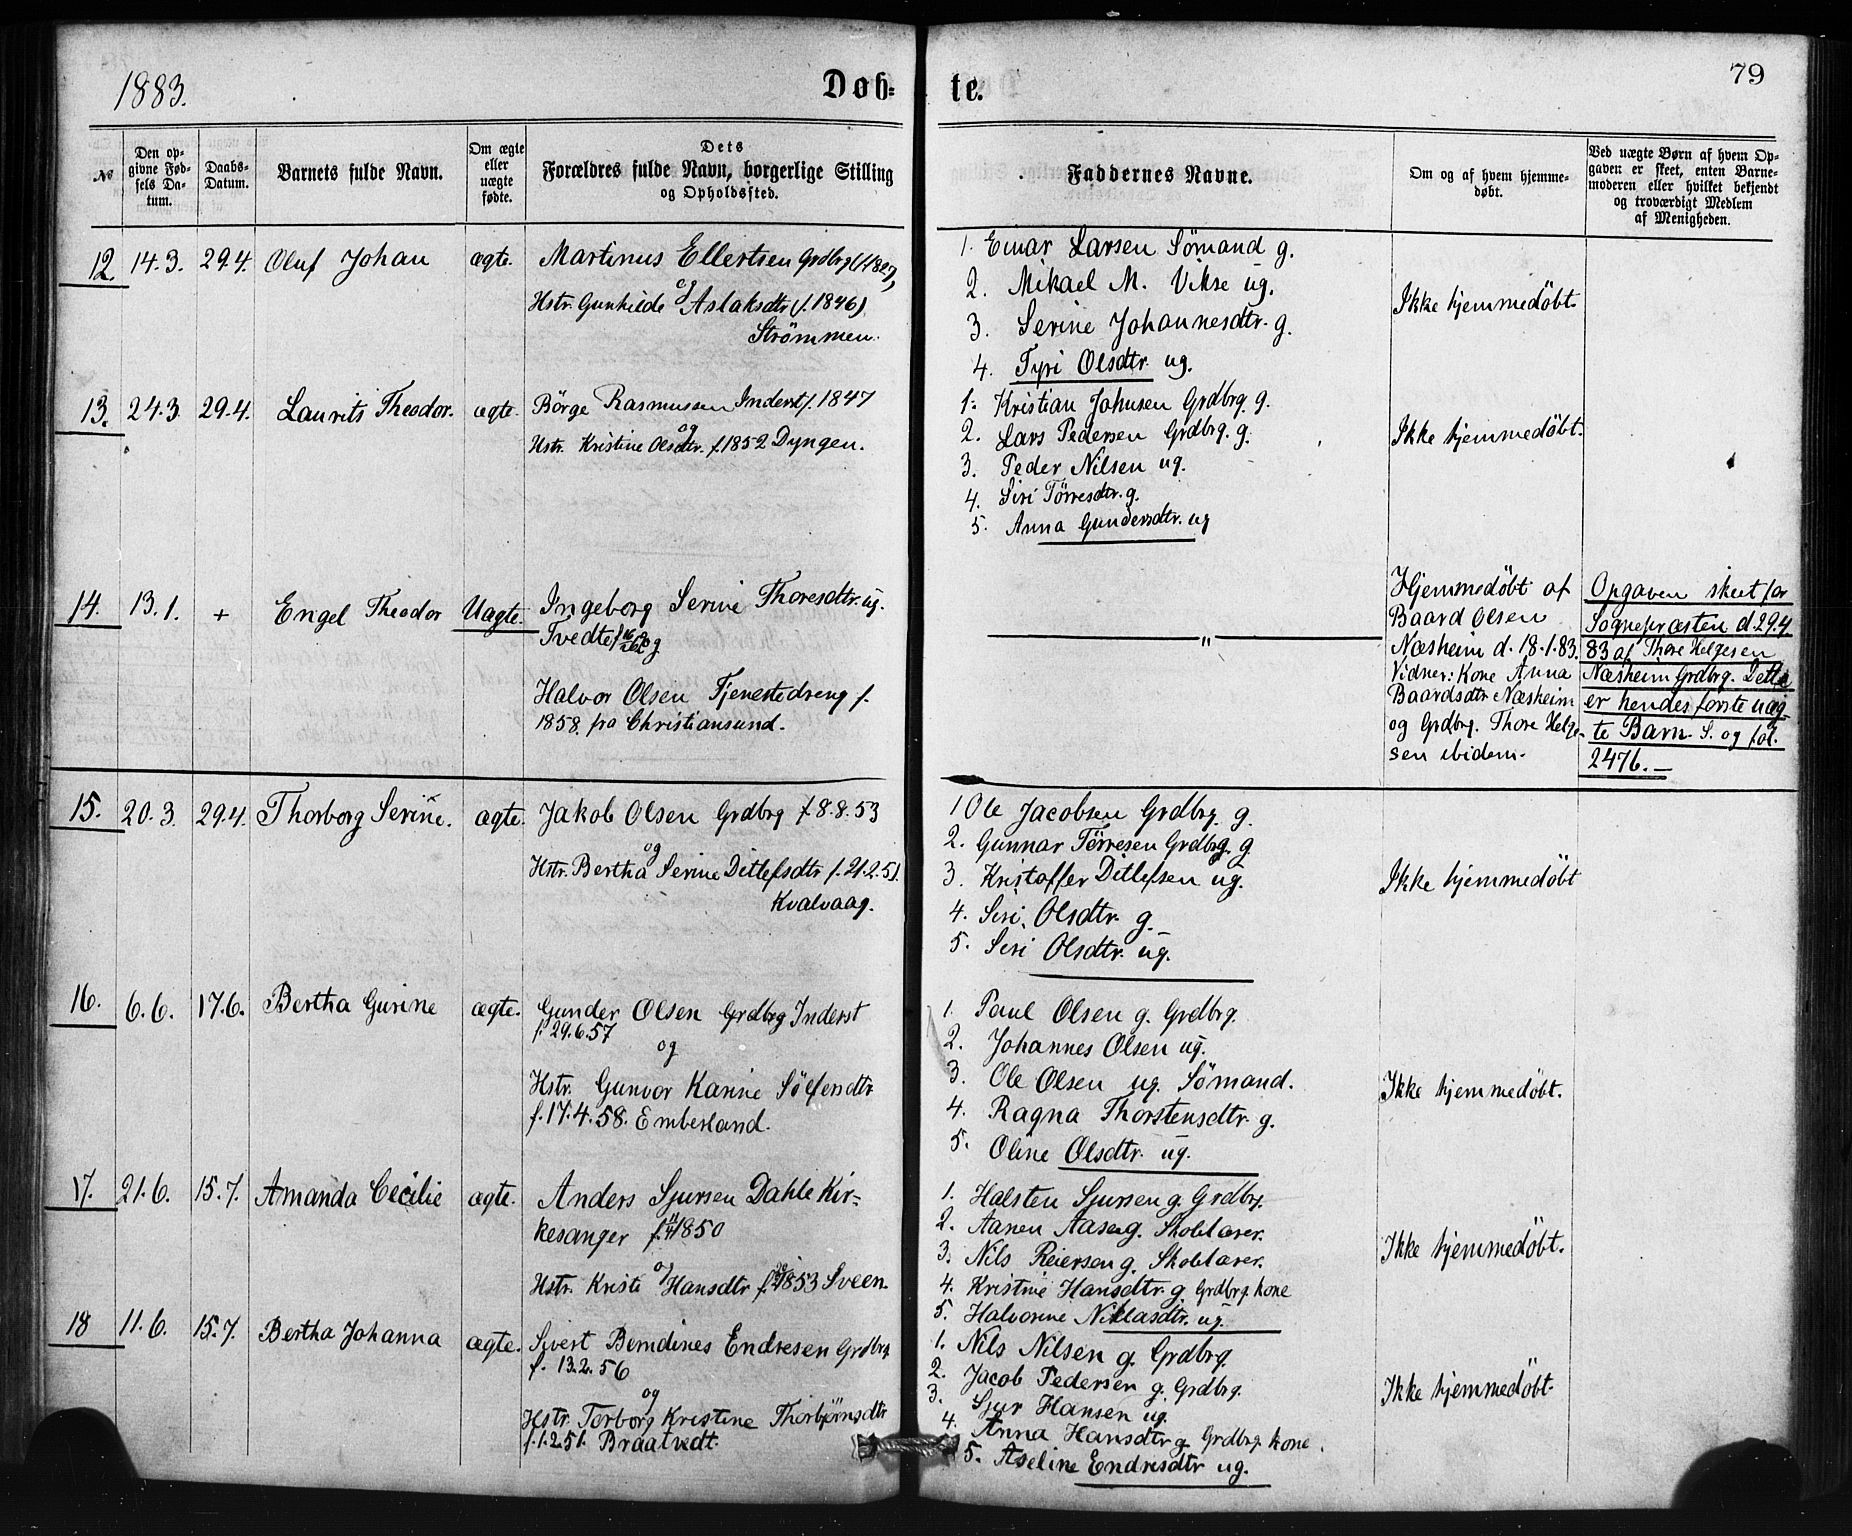 1883.
Døb-
te.
79
№
Den op-
givne Fød-
sels Da-
tum.
Daabs-
Datum.
Barnets fulde Navn.
Om ægte
eller
uægte
fødte.
Dets
Forældres fulde Navn, borgerlige Stilling
og Opholdssted.
Faddernes Navne.
Om og af hvem hjemme-
døbt.
Ved uægte Børn af hvem Op-
gaven er skeet, enten Barne-
moderen eller hvilket bekjendt
og troværdigt Medlem
af Menigheden.
12. 14.3. 29.4. Oluf Johan ægte. Martinus Ellertsen Grdbrg
og
Hstr. Gunhilde Aslaksdtr (f. 1846)
Strømmen.
1. Einar Larsen Sömand g.
2. Mikael M. Vikse ug.
3. Serine Johannesdtr. g.
4. Tyri Olsdtr. ug.
Ikke hjemmedøbt.
13. 24.3. 29.4. Laurits Theodor. ægte. Börge Rasmussen Inderst f. 1847
og
Hstr. Kristine Olsdtr. f. 1852 Dyngen.
1. Kristian Johnsen Grdbrg. g.
2. Lars Pedersen Grdbrg. g.
3. Peder Nilsen ug.
4. Siri Törresdtr. g.
5. Anna Gundersdtr. ug
Ikke hjemmedøbt.
14. 13.1. + Engel Theodor Uægte. Ingeborg Serine Thoresdtr. ug.
Tvedte og
Halvor Olsen Tjenestedreng f.
1858. fra Christiansund.
"
Hjemmedøbt af
Baard Olsen
Næsheim d. 18.1.83.
Vidner: Kone Anna
Baardsdtr. Næsheim
og Grdbrg. Thore Helge-
sen ibidem.
Opgaven skeet for
Sognepræsten d. 29.4.
83 af Thore Helgesen
Næsheim Grdbrg. Dette
er hendes første uæg-
te Barn. S. og fol.
2476.—
15. 20.3. 29.4. Thorborg Serine. ægte. Jakob Olsen Grdbrg f. 8.8.53
og
Hstr. Bertha Serine Ditlefsdtr f. 21.2.51.
Kvalvaag.
1 Ole Jacobsen Grdbrg. g.
2. Gunnar Tørresen Grdbrg. g
3. Kristoffer Ditlefsen ug.
4. Siri Olsdtr. g.
5. Siri Olsdtr. ug.
Ikke hjemmedøbt
16. 6.6. 17.6. Bertha Gurine ægte. Gunder Olsen Grdbrg Inderst
f. 29.6.57
og
Hstr. Gunvor Karine Sölfensdtr
f. 17.4.58. Emberland.
1. Paul Olsen g. Grdbrg.
2. Johannes Olsen ug.
3. Ole Olsen ug. Sömand.
4. Ragna Thorstensdtr. g.
5. Oline Olsdtr. ug.
Ikke hjemmedøbt.
17. 21.6. 15.7. Amanda Cecilie ægte. Anders Sjursen Dahle Kir-
kesanger 1850
og
Hstr. Kristi Hansdtr 1853 Sveen.
1. Halsten Sjursen g. Grdbrg.
2. Aanen Aase g. Skolelærer.
3. Nils Reiersen g. Skolelærer.
4. Kristine Hansdtr. g Grdbrg. kone
5. Halvorine Niklasdtr. ug.
Ikke hjemmedøbt.
18 11.6. 15.7. Bertha Johanna ægte. Sivert Berndines Endresen Grdbrg
f. 13.2.56
og
Hstr. Torborg Kristine Thorbjørnsdtr
f. 1.2.51. Braatvedt.
1. Nils Nilsen g. Grdbrg.
2. Jacob Pedersen g. Grdbrg.
3. Sjur Hansen ug.
4. Anna Hansdtr g Grdbrg. kone.
5. Aseline Endresdtr ug.
Ikke hjemmedøbt.